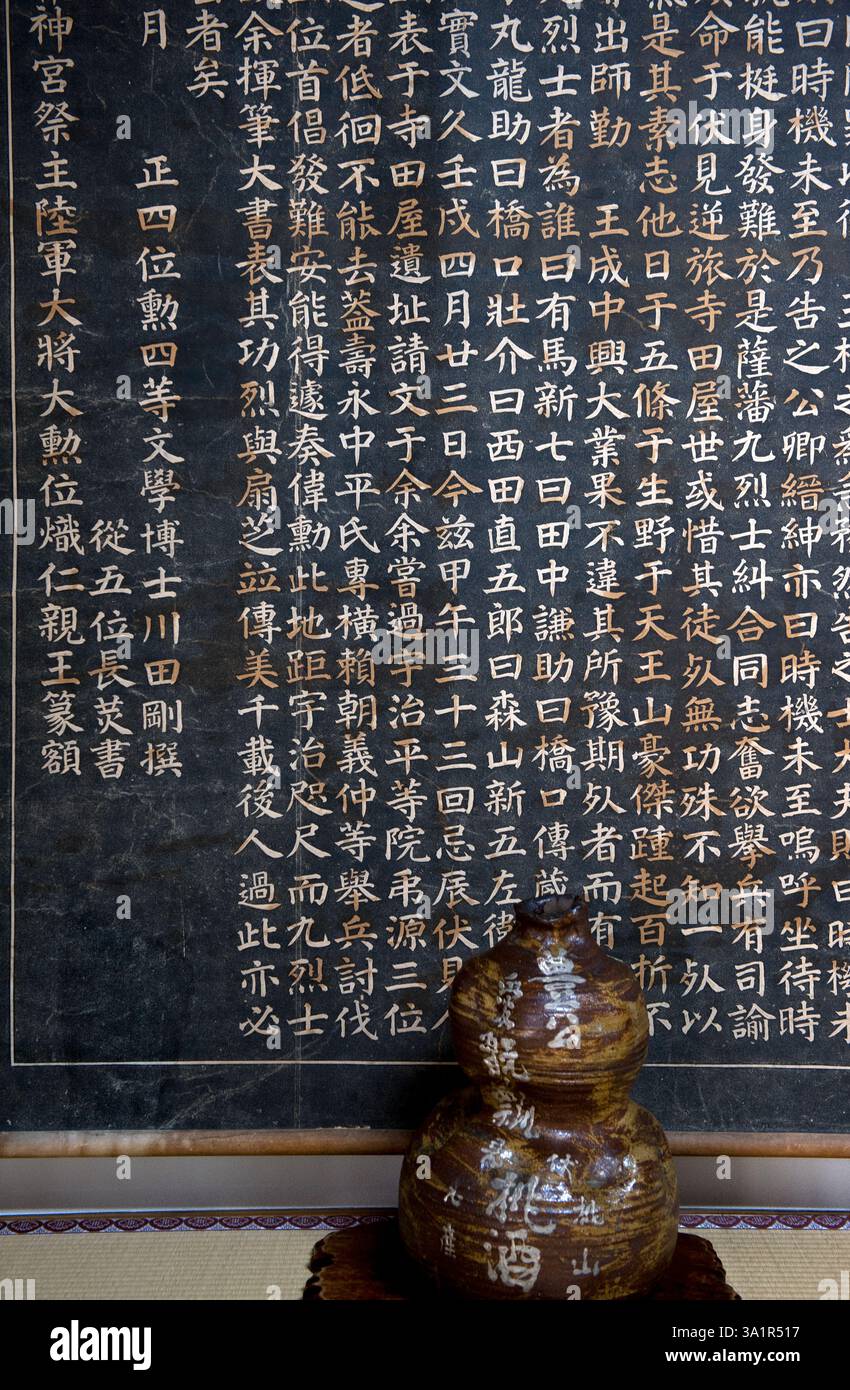 士大夫則曰時機未
曰時機未至乃告之公卿縉紳亦曰時機未至嗚呼坐待時
能挺身發難於是薩藩九烈士糾合同志奮欲舉兵有司諭
命于伏見逆旅寺田屋世或惜其徒死無功殊不知一死以
是其素志他日于五條于生野于天王山豪傑踵起百折不
出師勤　王成中興大業果不違其所豫期死者而有
烈士者為誰曰有馬新七曰田中謙助曰橋口傳蔵
丸龍助曰橋口壯介曰西田直五郎曰森山新五左衛
實文久壬戌四月廿三日今茲甲午三十三回忌辰伏見
表于寺田屋遺址請文于余余嘗過宇治平等院弔源三位
者低徊不能去蓋壽永中平氏專橫賴朝義仲等舉兵討伐
位首倡發難安能得遽奏偉勳此地距宇治咫尺而九烈士
余揮筆大書表其功烈與扇芝竝傳美千載後人過此亦必
者矣
月　正四位勳四等文學博士川田剛撰
從五位長炗書
神宮祭主陸軍大將大勳位熾仁親王篆額
豊公
桃酒
桃山
alamy
Image ID: 3A1R517
www.alamy.com